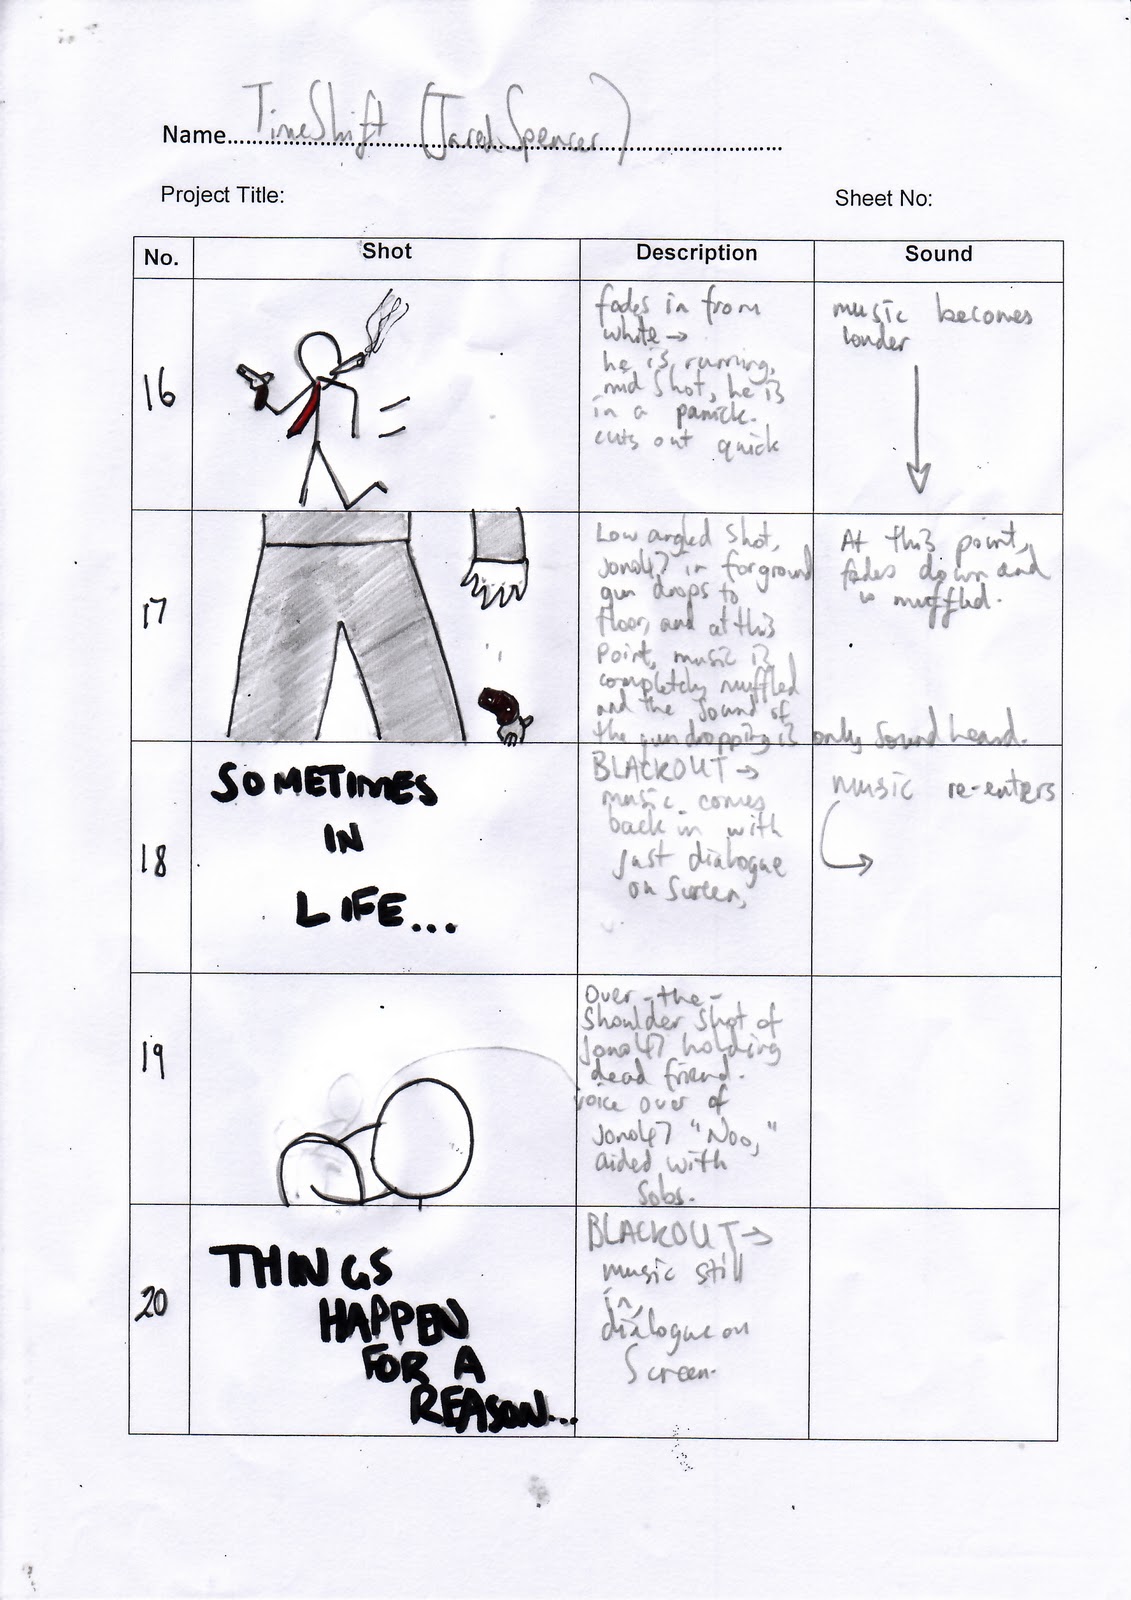 Name..... TimeShift (Jared Spencer)
Project Title:
Sheet No:
No.
Shot
Description
Sound
16
fades in from
white →
he is running,
mid shot, he is
in a panick.
cuts out quick
music becomes
louder
17
Low angled shot,
Jono47 in forground
gun drops to
floor, and at this
point, music is
completely muffled
and the sound of
the gun dropping is only sound heard.
At this point,
fades down and
is muffled.
18
SOMETIMES
IN
LIFE...
BLACKOUT →
music comes
back in with
just dialogue
on screen,
music re-enters
19
Over-the-
shoulder shot of
Jono47 holding
dead friend.
voice over of
Jono47 "Noo,"
aided with
sobs.
20
THINGS
HAPPEN
FOR A
REASON...
BLACKOUT →
music still
in,
dialogue on
screen.